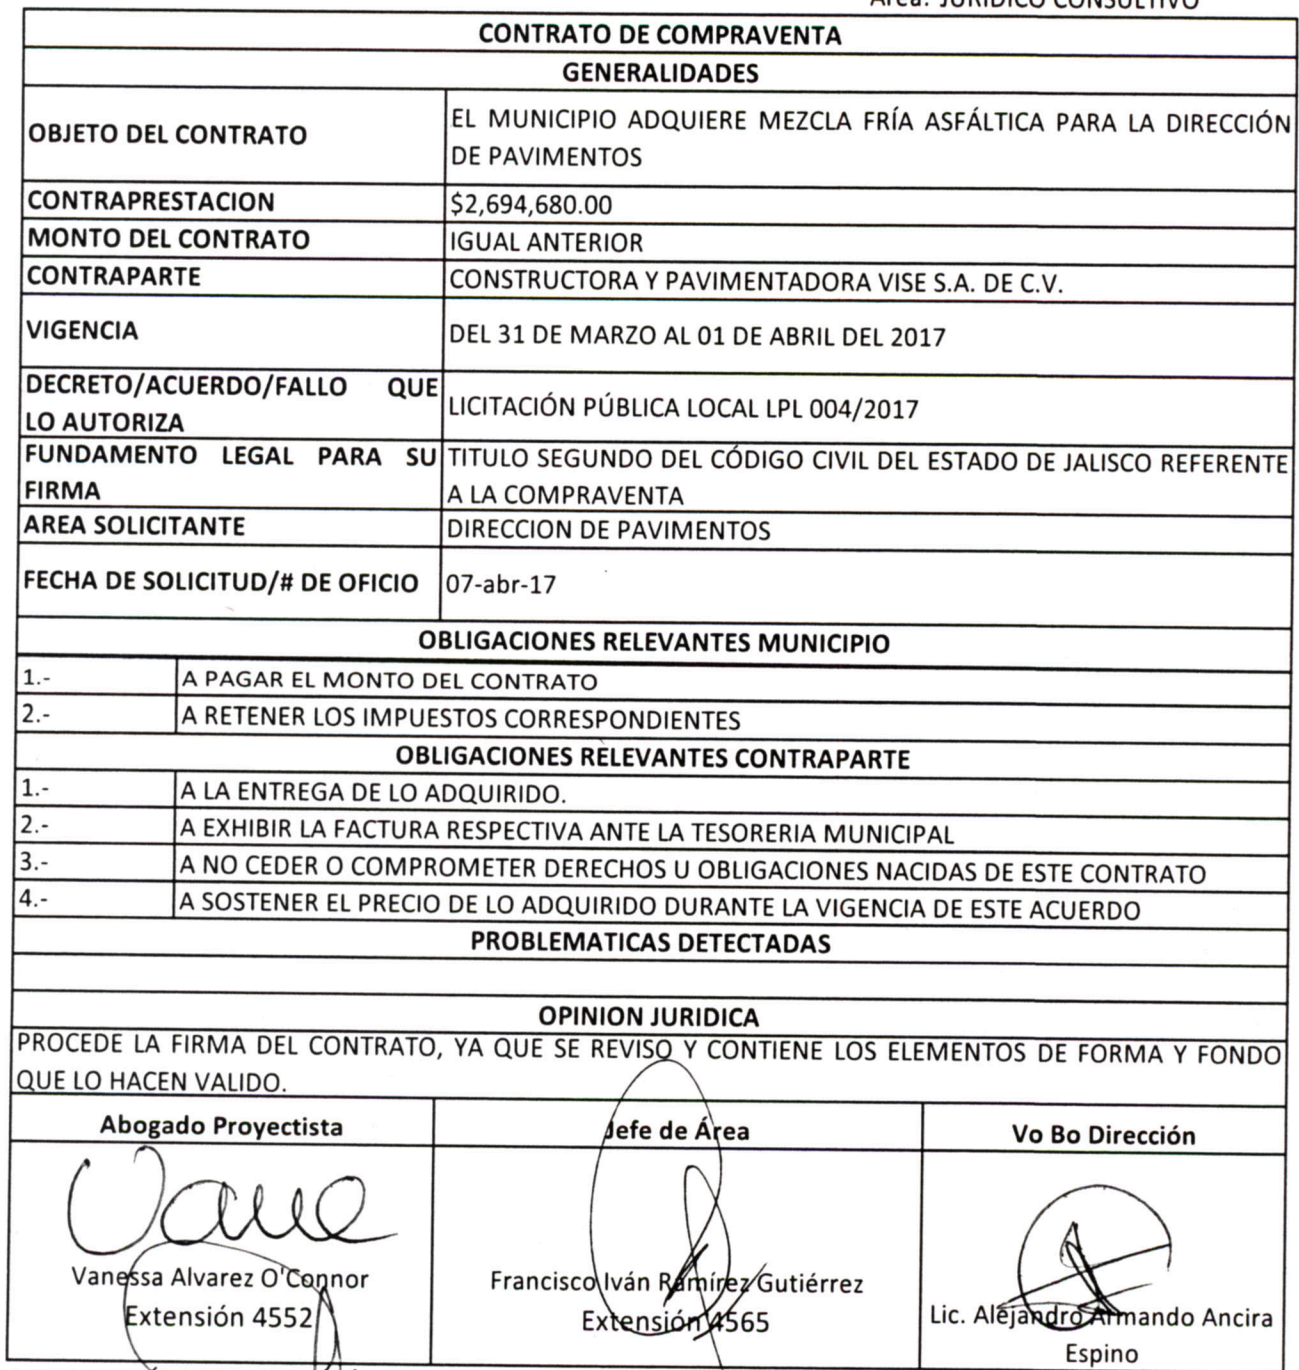 Área: JURÍDICO CONSULTIVO
CONTRATO DE COMPRAVENTA
GENERALIDADES
OBJETO DEL CONTRATO
EL MUNICIPIO ADQUIERE MEZCLA FRÍA ASFÁLTICA PARA LA DIRECCIÓN
DE PAVIMENTOS
CONTRAPRESTACION
$2,694,680.00
MONTO DEL CONTRATO
IGUAL ANTERIOR
CONTRAPARTE
CONSTRUCTORA Y PAVIMENTADORA VISE S.A. DE C.V.
VIGENCIA
DEL 31 DE MARZO AL 01 DE ABRIL DEL 2017
DECRETO/ACUERDO/FALLO QUE
LO AUTORIZA
LICITACIÓN PÚBLICA LOCAL LPL 004/2017
FUNDAMENTO LEGAL PARA SU
FIRMA
TITULO SEGUNDO DEL CÓDIGO CIVIL DEL ESTADO DE JALISCO REFERENTE
A LA COMPRAVENTA
AREA SOLICITANTE
DIRECCION DE PAVIMENTOS
FECHA DE SOLICITUD/# DE OFICIO
07-abr-17
OBLIGACIONES RELEVANTES MUNICIPIO
1.- A PAGAR EL MONTO DEL CONTRATO
2.- A RETENER LOS IMPUESTOS CORRESPONDIENTES
OBLIGACIONES RELEVANTES CONTRAPARTE
1.- A LA ENTREGA DE LO ADQUIRIDO.
2.- A EXHIBIR LA FACTURA RESPECTIVA ANTE LA TESORERIA MUNICIPAL
3.- A NO CEDER O COMPROMETER DERECHOS U OBLIGACIONES NACIDAS DE ESTE CONTRATO
4.- A SOSTENER EL PRECIO DE LO ADQUIRIDO DURANTE LA VIGENCIA DE ESTE ACUERDO
PROBLEMATICAS DETECTADAS
OPINION JURIDICA
PROCEDE LA FIRMA DEL CONTRATO, YA QUE SE REVISO Y CONTIENE LOS ELEMENTOS DE FORMA Y FONDO
QUE LO HACEN VALIDO.
Abogado Proyectista
Jefe de Área
Vo Bo Dirección
Vane
Vanessa Alvarez O'Connor
Extensión 4552
Francisco Iván Ramírez Gutiérrez
Extensión 4565
Lic. Alejandro Armando Ancira
Espino